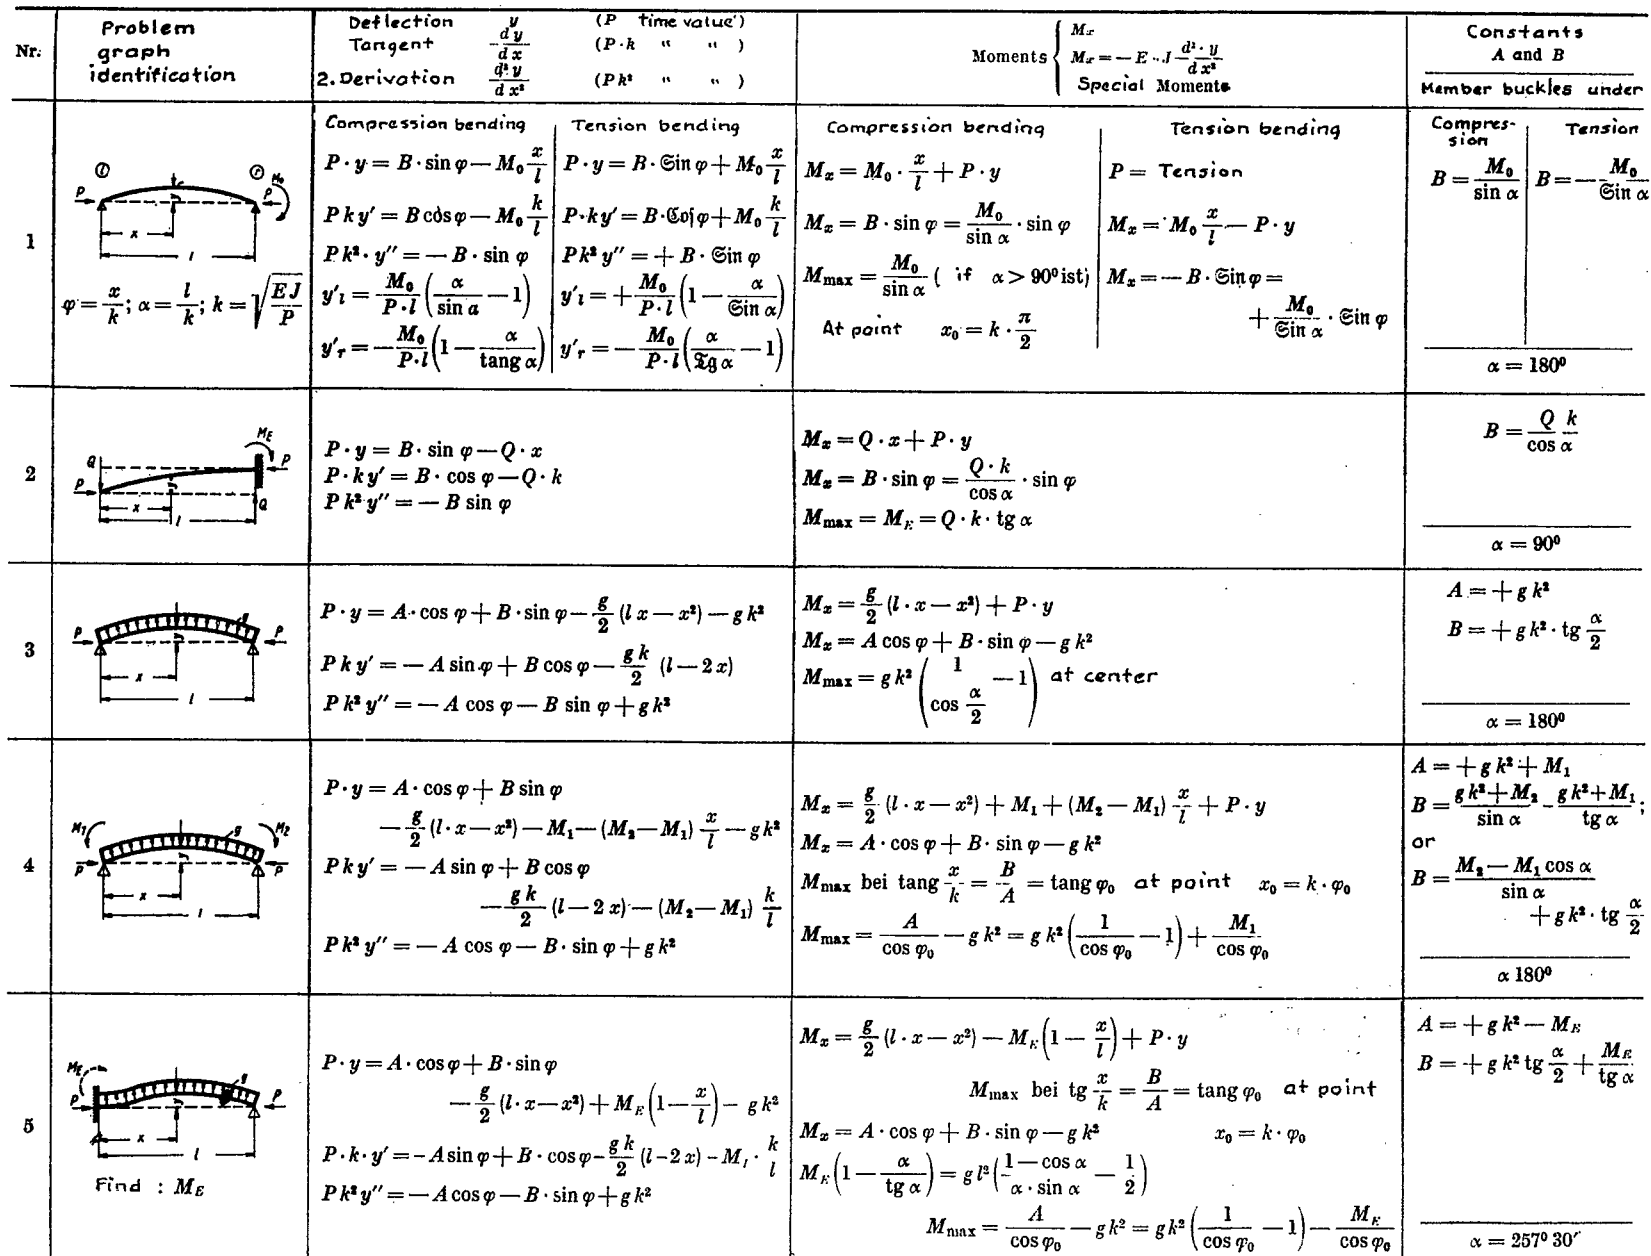 Nr.
Problem
graph
identification
Deflection y (P time value)
Tangent dy/dx (P·k " " )
2. Derivation d²y/dx² (Pk² " " )
Moments { Mx
Mx = — E · J d²·y/dx²
Special Moments
Constants
A and B
Member buckles under
1
l r M₀
P P
y
x
l
φ = x/k; α = l/k; k = √(EJ/P)
Compression bending
P · y = B · sin φ — M₀ x/l
P k y′ = B cos φ — M₀ k/l
P k² · y″ = — B · sin φ
y′l = M₀/(P·l) (α/sin a — 1)
y′r = — M₀/(P·l) (1 — α/tang α)
Tension bending
P · y = B · Sin φ + M₀ x/l
P · k y′ = B · Coj φ + M₀ k/l
P k² y″ = + B · Sin φ
y′l = + M₀/(P·l) (1 — α/Sin α)
y′r = — M₀/(P·l) (α/Tg α — 1)
Compression bending
Mx = M₀ · x/l + P · y
Mx = B · sin φ = M₀/sin α · sin φ
Mmax = M₀/sin α ( if α > 90⁰ ist)
At point x₀ = k · π/2
Tension bending
P = Tension
Mx = M₀ x/l — P · y
Mx = — B · Sin φ =
+ M₀/Sin α · Sin φ
Compres-
sion
B = M₀/sin α
Tension
B = — M₀/Sin α
α = 180⁰
2
ME
Q P
P y
x Q
l
P · y = B · sin φ — Q · x
P · k y′ = B · cos φ — Q · k
P k² y″ = — B sin φ
Mx = Q · x + P · y
Mx = B · sin φ = Q · k/cos α · sin φ
Mmax = ME = Q · k · tg α
B = Q k/cos α
α = 90⁰
3
g
P y P
x
l
P · y = A · cos φ + B · sin φ — g/2 (l x — x²) — g k²
P k y′ = — A sin φ + B cos φ — g k/2 (l — 2 x)
P k² y″ = — A cos φ — B sin φ + g k²
Mx = g/2 (l · x — x²) + P · y
Mx = A cos φ + B · sin φ — g k²
Mmax = g k² (1/cos α/2 — 1) at center
A = + g k²
B = + g k² · tg α/2
α = 180⁰
4
M₁ g M₂
P y P
x
l
P · y = A · cos φ + B sin φ
— g/2 (l · x — x²) — M₁ — (M₂ — M₁) x/l — g k²
P k y′ = — A sin φ + B cos φ
— g k/2 (l — 2 x) — (M₂ — M₁) k/l
P k² y″ = — A cos φ — B · sin φ + g k²
Mx = g/2 (l · x — x²) + M₁ + (M₂ — M₁) x/l + P · y
Mx = A · cos φ + B · sin φ — g k²
Mmax bei tang x/k = B/A = tang φ₀ at point x₀ = k · φ₀
Mmax = A/cos φ₀ — g k² = g k² (1/cos φ₀ — 1) + M₁/cos φ₀
A = + g k² + M₁
B = g k² + M₂/sin α - g k² + M₁/tg α;
or
B = M₂ — M₁ cos α/sin α
+ g k² · tg α/2
α 180⁰
5
ME g
P y P
x
l
Find : ME
P · y = A · cos φ + B · sin φ
— g/2 (l · x — x²) + ME (1 — x/l) — g k²
P · k · y′ = - A sin φ + B · cos φ - g k/2 (l - 2 x) - M, · k/l
P k² y″ = — A cos φ — B · sin φ + g k²
Mx = g/2 (l · x — x²) — ME (1 — x/l) + P · y
Mmax bei tg x/k = B/A = tang φ₀ at point
Mx = A · cos φ + B · sin φ — g k² x₀ = k · φ₀
ME (1 — α/tg α) = g l² (1 — cos α/α · sin α — 1/2)
Mmax = A/cos φ₀ — g k² = g k² (1/cos φ₀ — 1) — ME/cos φ₀
A = + g k² — ME
B = + g k² tg α/2 + ME/tg α
α = 257⁰ 30′